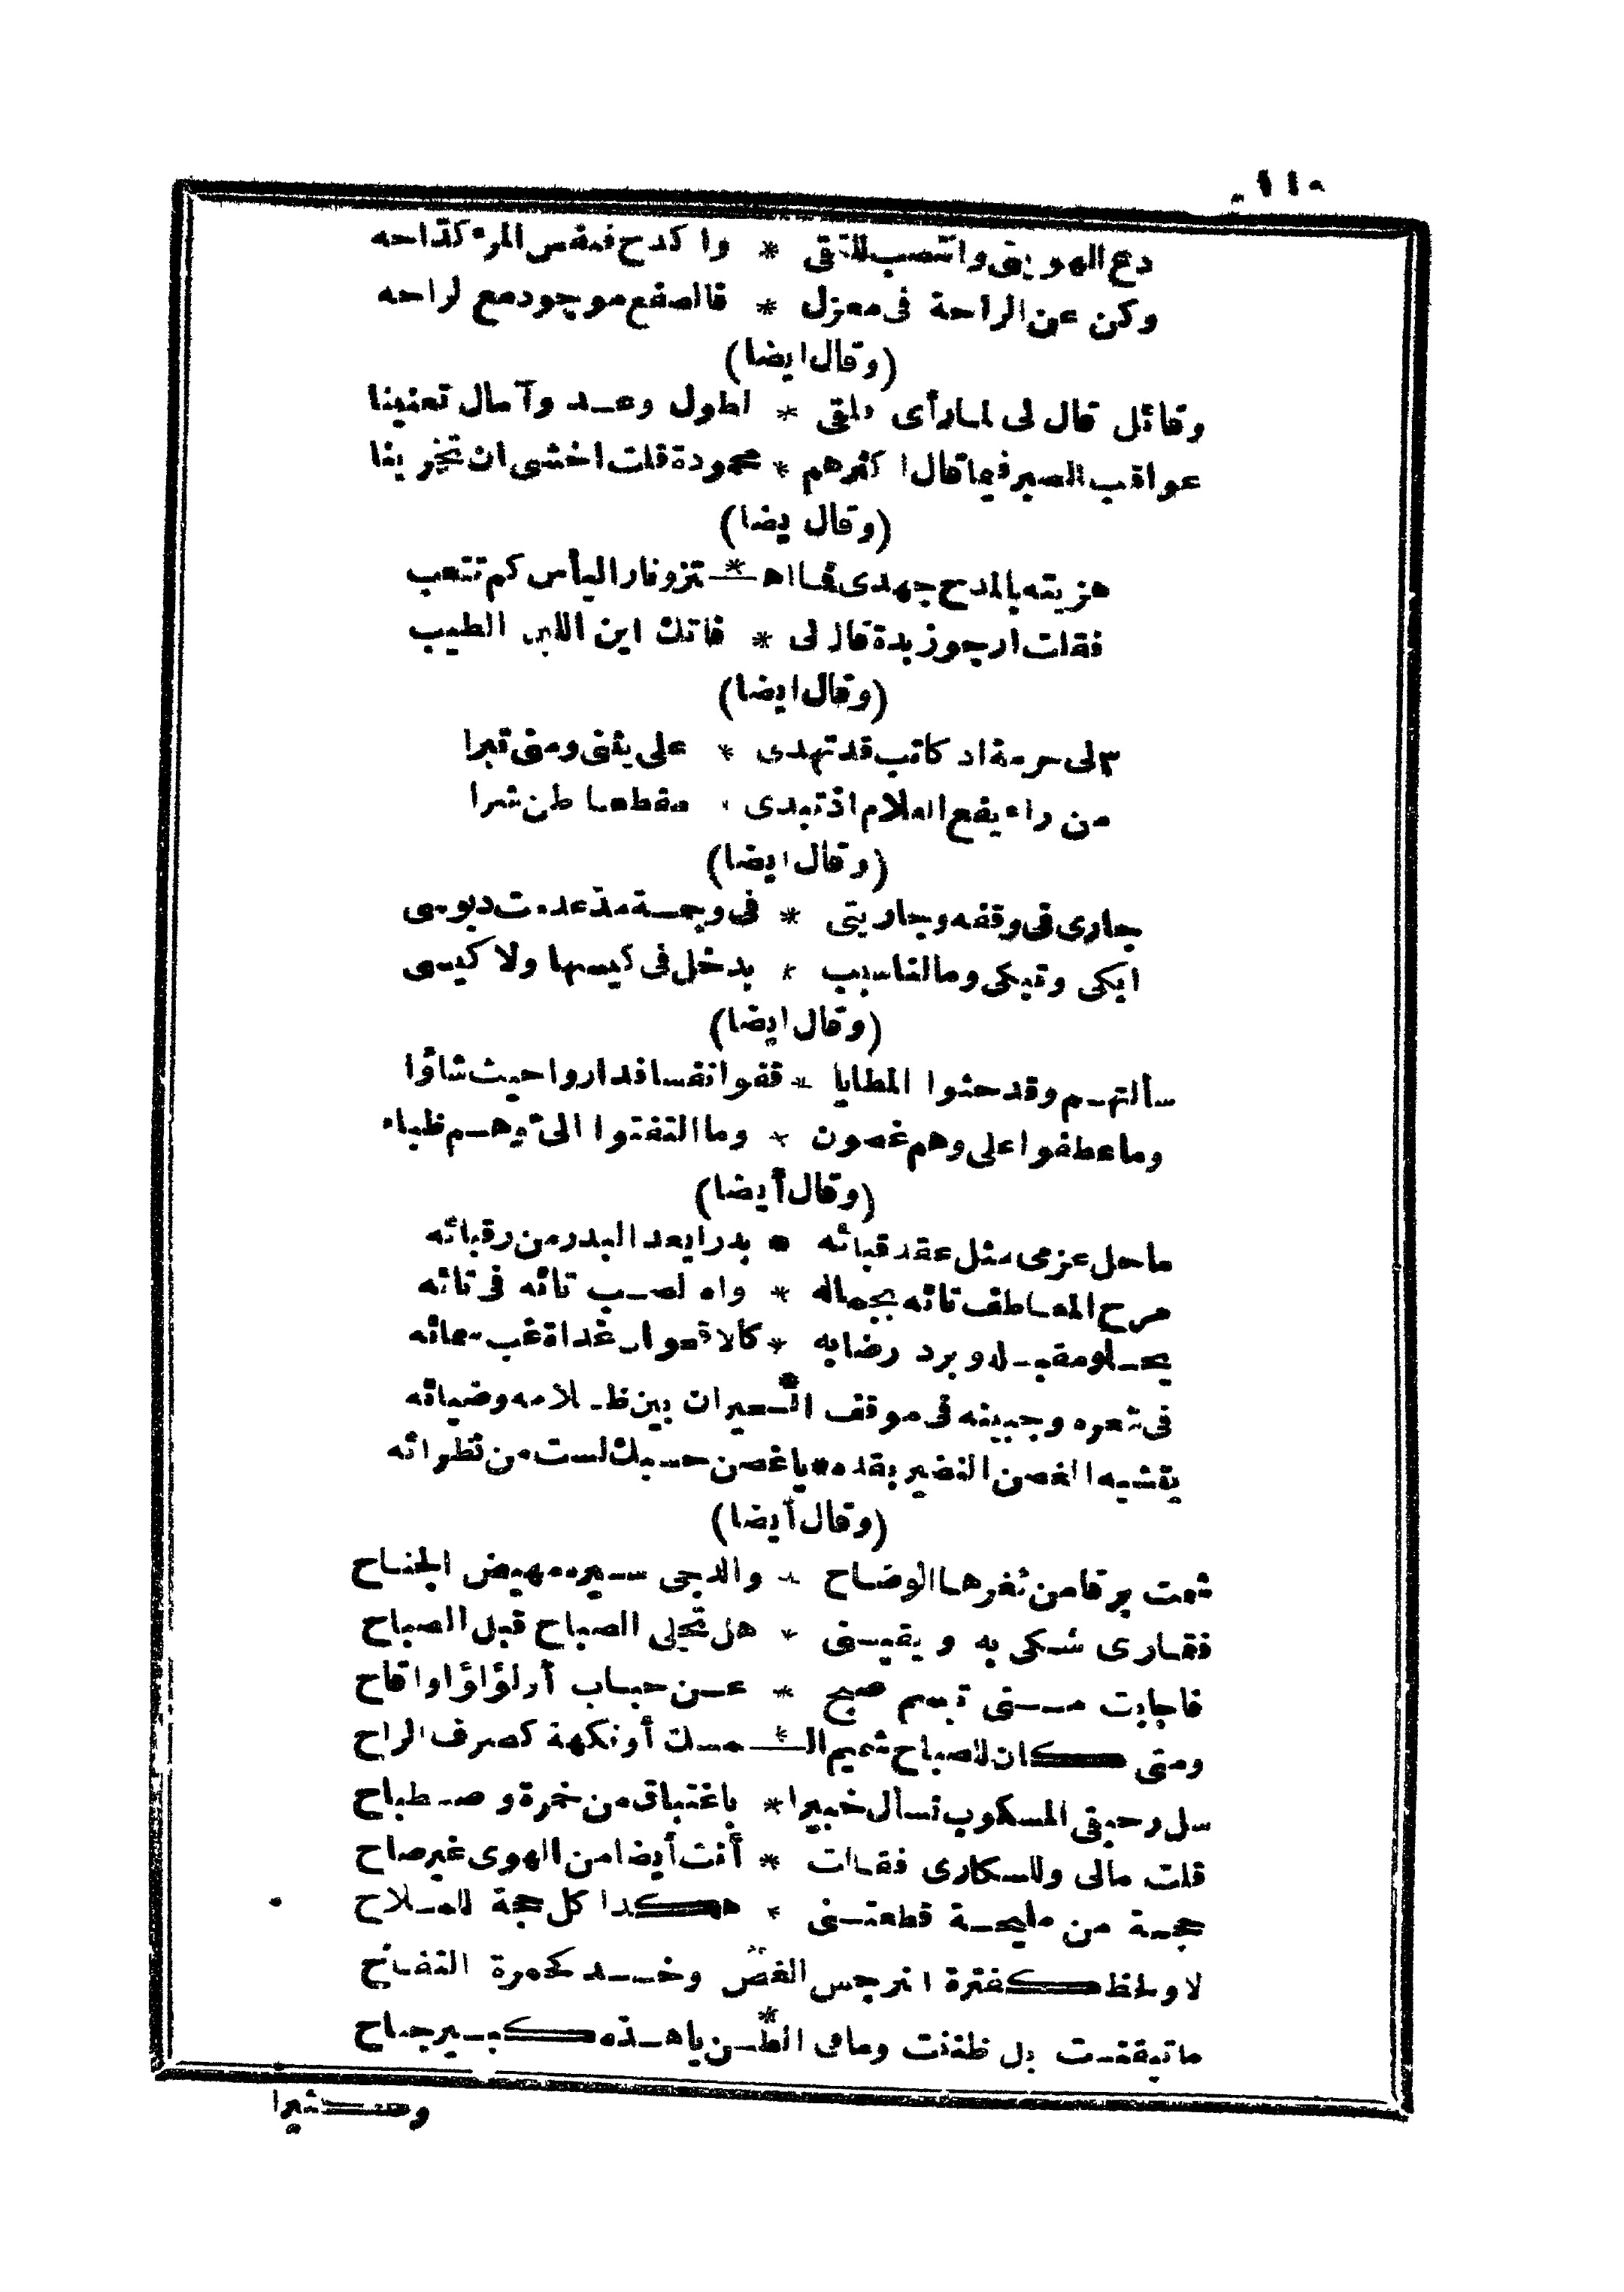 ١١٠
دع الهوينى وانتصب للتقى * واكدح فنفس المرء كدّاحه
وكن عن الراحة فى معزل * فالصفع موجود مع الراحه
(وقال ايضا)
وقائل قال لى لما رأى قلقى * لطول وعد وآمال تعنينا
عواقب الصبر فيما قال اكثرهم * محمودة قلت اخشى ان تخرينا
(وقال يضا)
هززته بالمدح جهدى فما اهـ * تزو نار اليأس كم تتعب
فقلت ارجو زبدة قال لى * فاتك اين اللبن الطيب
(وقال ايضا)
كاتب قد تهدى * على يثنى ومنى تبرا
من راء يفع الغلام اذ تبدى * مقطعا ظن شرا
(وقال ايضا)
جارى فى وقفه وجاريتى * فى وجسة مذ عدمت دبوسى
ابكى وتبكى وما لنا سبب * يدخل فى كيسها ولا كيسى
(وقال ايضا)
سألتهم وقد حثوا المطايا * قفوا نفسا فداروا حيث شاؤا
وما عطفوا على وهم غصون * وما التفتوا الىّ وهم ظباء
(وقال أيضا)
ما حل عزمى مثل عقد قبائه * بدر ايعد البدر من رقبائه
مرح المعاطف تائه بجماله * واه لصب تائه فى تائه
يحلو مقبله و برد رضابه * كالاقحوان غداة غب سمائه
فى شعره وجبينه فى موقف الـ * ـحيران بين ظلامه وضيائه
يتشبه الغصن النضير بقده * يا غصن حسبك لست من نظرائه
(وقال أيضا)
شمت برقا من ثغرها الوضاح * والدجى سيره مهيض الجناح
فتمارى شكى به و يقينى * هل تجلى الصباح قبل الصباح
فاجابت متى تبسم صبح * عن حباب أو لؤلؤ او اقاح
ومتى كان للصباح شميم الـ * مسك أو نكهة كصرف الراح
سل رحيقى المسكوب تسأل خبيرا * باغتباق من خمرة و صطباح
قلت مالى وللسكارى فقالت * أنت أيضا من الهوى غير صاح
حجة من مليحة قطعتنى * هكذا كل حجة للملاح
لا ولحظ كفترة النرجس الغض وخد كحمرة التفاح
ما تيقنت بل ظننت وما فى الظـ * ـن يا هذه كبير جناح
وكثيرا